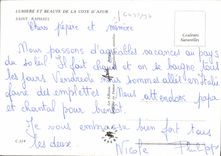 LUMIÈRE ET BEAUTÉ DE LA COTE D'AZUR
SAINT-RAPHAEL
Couleurs
Naturelles
Chers pépère et mémère
Nous passons d'agréables vacances au pays
du soleil Il fait chaud et on se baigne tous
les jours Vendredi nous sommes allés en Italie
faire des emplettes Nous attendons papa
et chantal pour bientôt
Je vous embrasse bien fort tous
les deux
Nicole
C 224